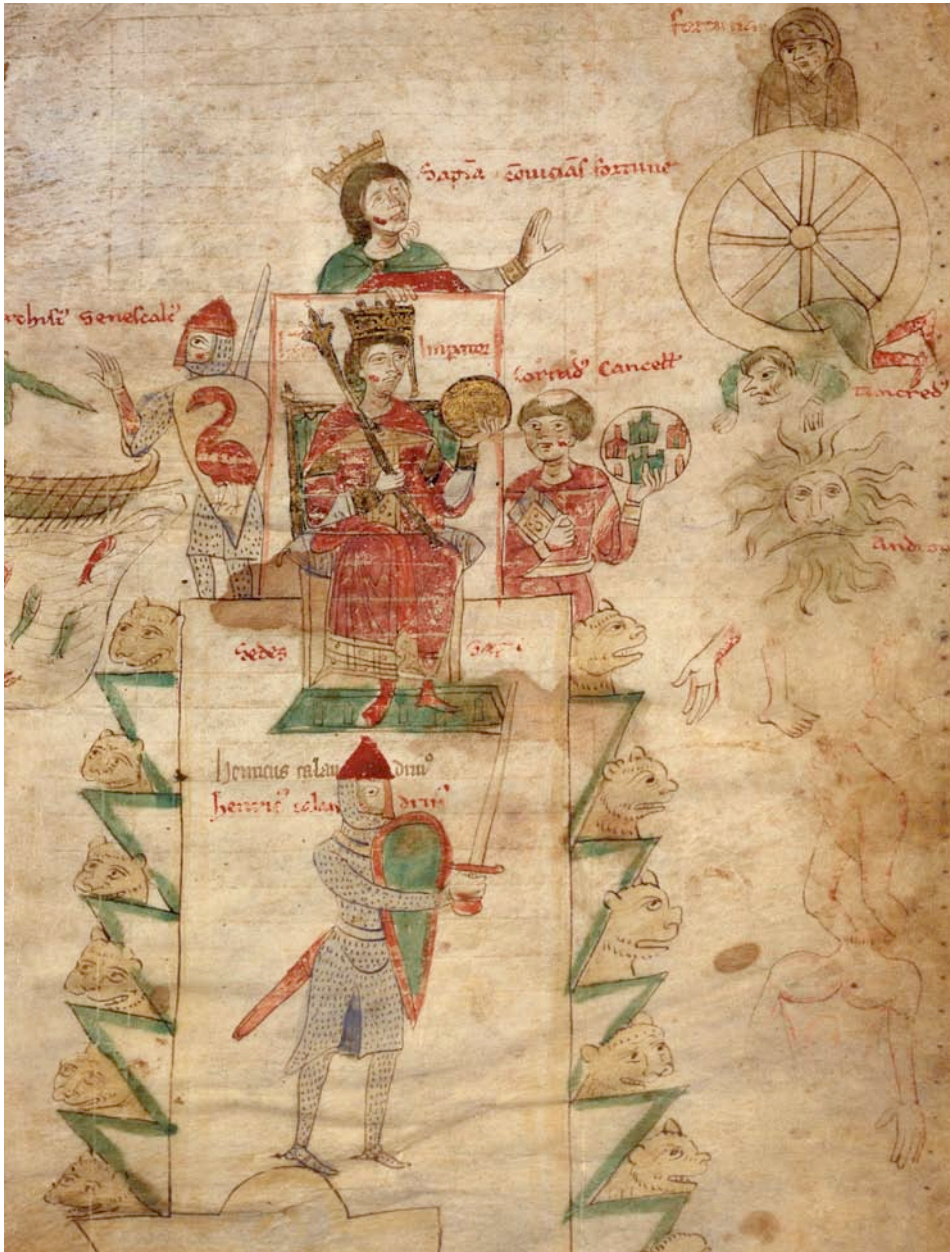 fortuna
Sapīa cōuiciās fortune
rchisꝰ Senescalcꝰ
Inpator
Corradꝰ Cancell
tancredꝰ
Andro
Sedes Sap
henricus calan drinꝰ
henricꝰ calan drinꝰ